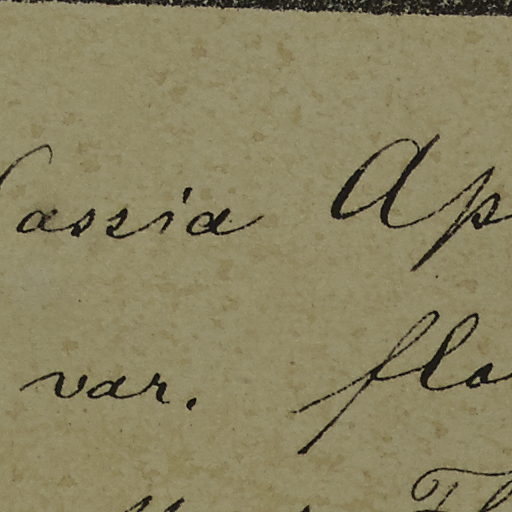 Cassia Ap
var. fla